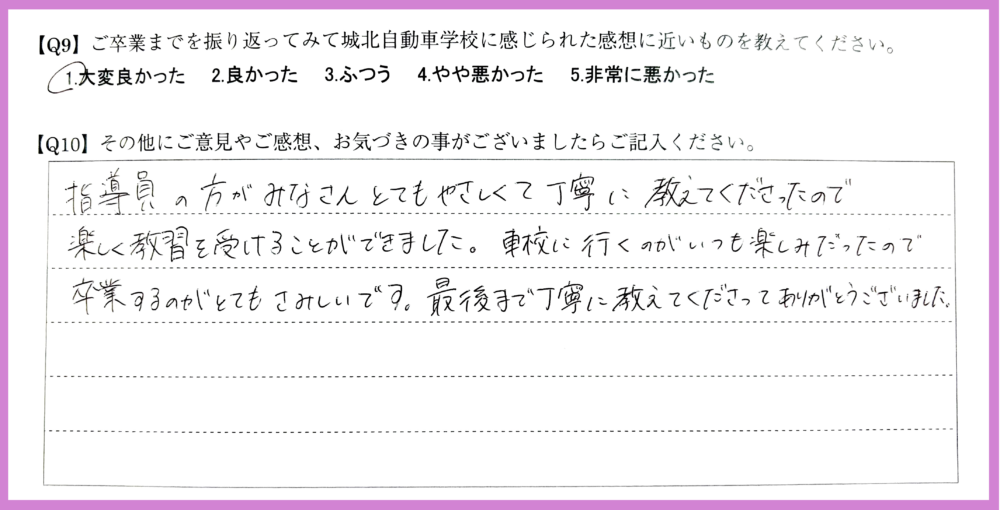 【Q9】ご卒業までを振り返ってみて城北自動車学校に感じられた感想に近いものを教えてください。
1.大変良かった 2.良かった 3.ふつう 4.やや悪かった 5.非常に悪かった
【Q10】その他にご意見やご感想、お気づきの事がございましたらご記入ください。
指導員の方がみなさんとてもやさしくて丁寧に教えてくださったので
楽しく教習を受けることができました。車校に行くのがいつも楽しみだったので
卒業するのがとてもさみしいです。最後まで丁寧に教えてくださってありがとうございました。